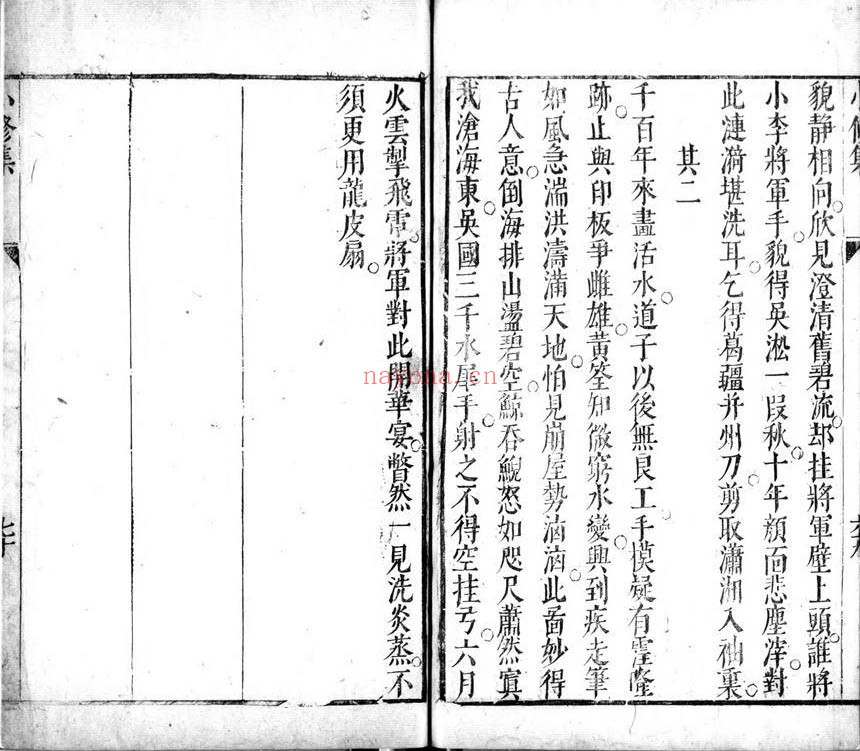 貌静相向欣見澄清舊碧流却挂將軍壁上頭誰將
小李將軍手貌得吳淞一叚秋十年顔面悲塵滓對
此漣漪堪洗耳乞得葛疆并州刀剪取瀟湘入袖裏
其二
千百年來盡活水道子以後無良工手模疑有霊隆
跡止與印板爭雌雄黄筌知微窮水變興到疾走筆
如風急湍洪濤滿天地怕見崩屋勢洶洶此畣妙得
古人意倒海排山盪碧空鯨吞鯢怒如咫尺蕭然寘
我滄海東吳國三千水犀手射之不得空挂弓六月
火雲掣飛雷將軍對此開華宴瞥然一見洗炎蒸不
須更用龍皮扇
小修集
六九
小修集
七十
nayona.cn